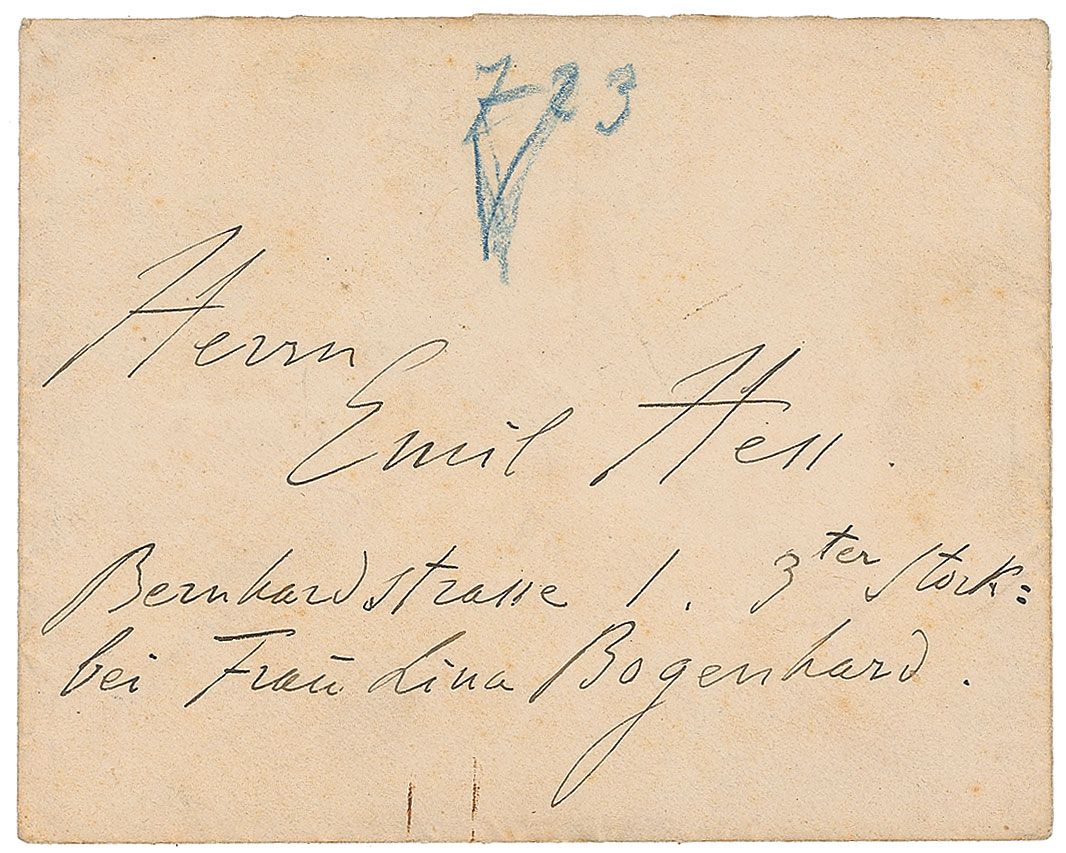 723
Herrn
Emil Hess.
Bernhardstrasse 1. 3ter Stock:
bei Frau Lina Bogenhard.